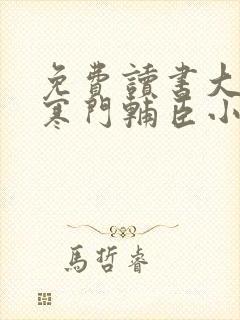 免費讀書大
寒門輔臣小
馬哲睿